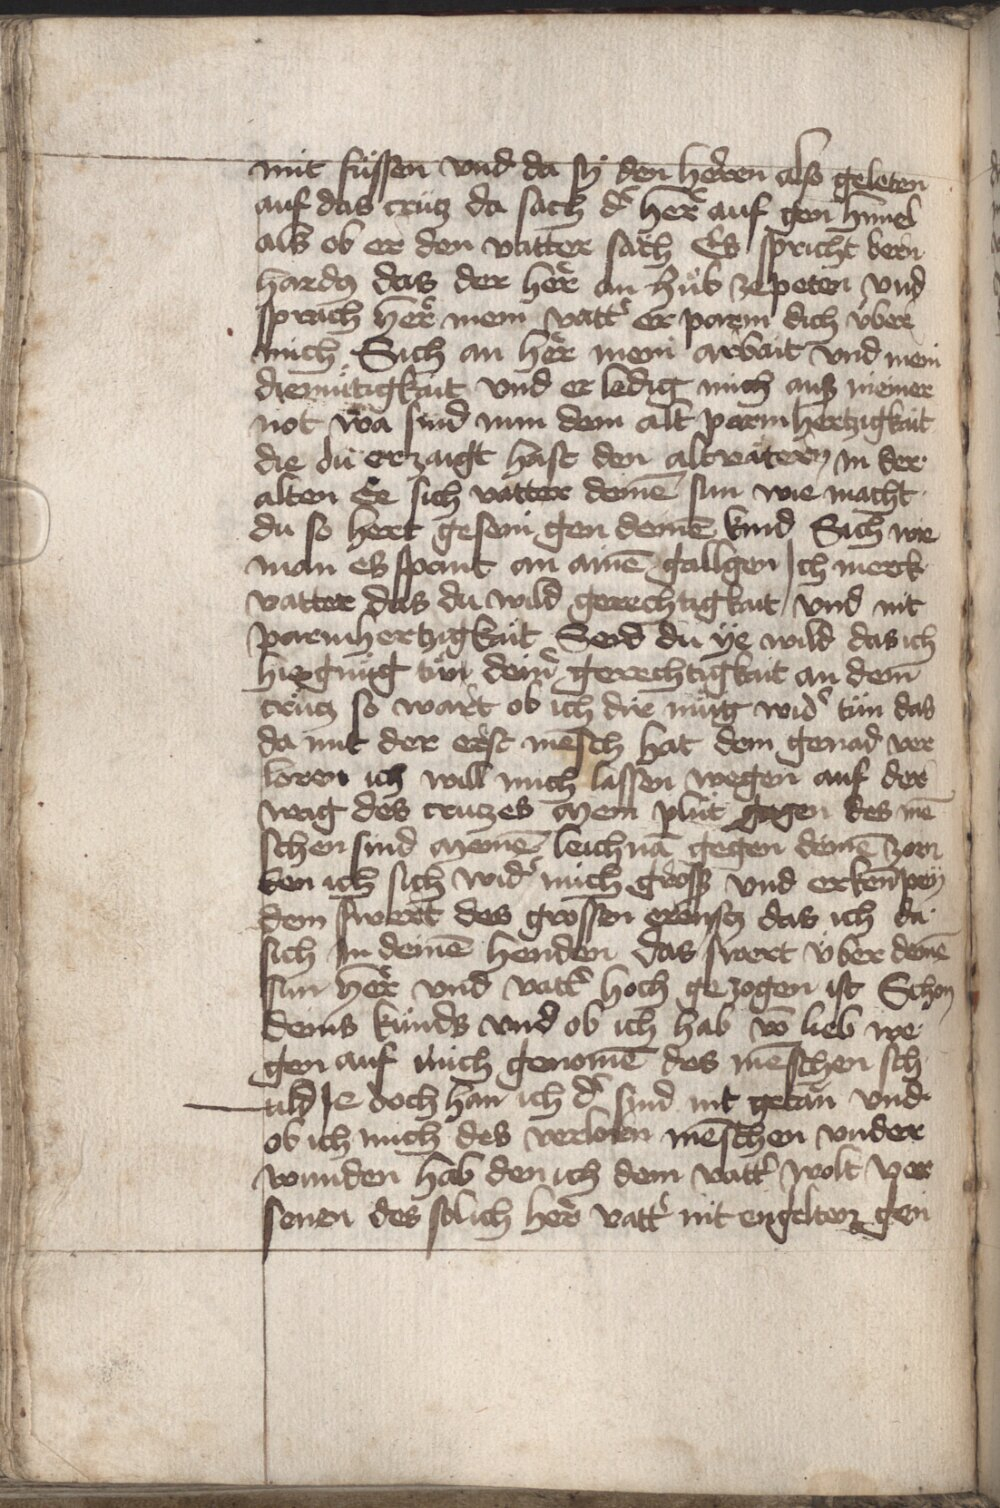 mit füssen vnd da sy den herren also geleten
auf das crütz da sach d' her auf gen himel
als ob er den vatter säch Es spricht bern
hardus das der her an hub zepeten vnd
sprach her mein vatt' er parm dich vber
mich Sich an her mein arbait vnd mein
diemütigkait vnd er ledig mich aus meiner
not wa sind nun dein alt parmhertzigkait
die du erzaigt hast den altvätern in der
alten Ee sich vatter deinē sun wie macht
du so hert gesein gen deinē kind Sich wie
man es spant an ainē gallgen Ich merck
vatter das du wild gerechtigkait vnd nit
parmhertzigkait Seid du ye wild das ich
hie gnüg tün dein' gerechtigkait an dem
crütz so wart ob ich die müg wid' tün das
da mit der erst mēsch hat dein genad ver
loren ich will mich lassen wegen auf der
wag des crutzes mein plüt gegen des mē
schen sind meinē leichnā gegen deinē zorn
den ich sich wid' mich gross vnd erkenn pey
dem swert des grossen ernsts das ich da
sich in deinē henden das swert über deinē
sun her vnd vatt' hoch gezogen ist Schon
deins kinds vnd ob ich hab vō lieb we
gen auf mich genomē des mēschen sch
uld Je doch han ich d' sünd nit getän vnd
ob ich mich des verlorn mēschen vnder
wunden hab den ich dem vatt' wolt ver
senen des solich her vatt' nit engelten gen